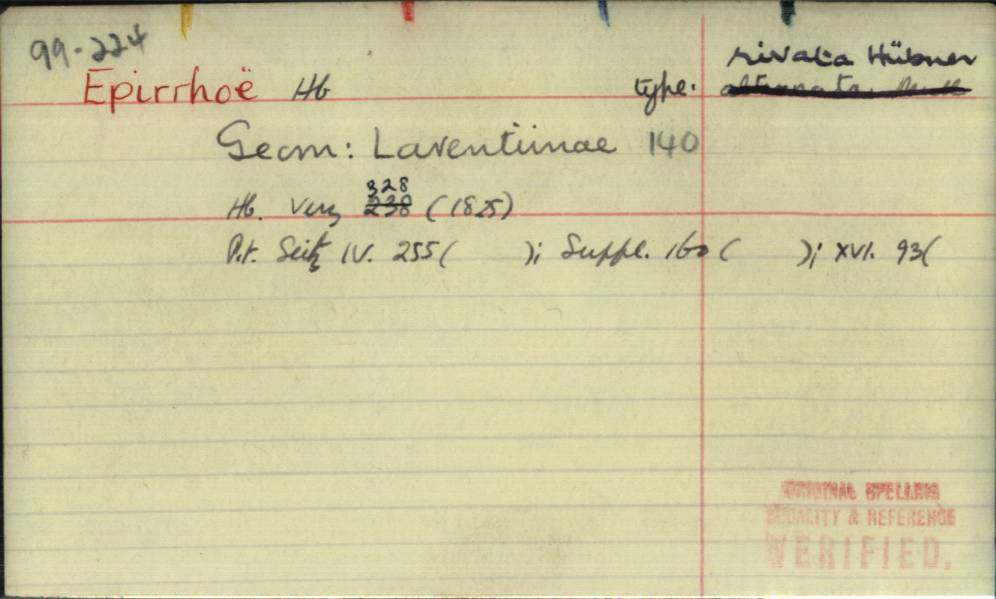 99-224
rivata Hübner
Epirrhoë Hb type:
Geom: Larentiinae 140
328
Hb. Verz 238 (1825)
P.t. Seitz IV. 255( ); Suppl. 160 ( ); XVI. 93(
ORIGINAL SPELLING
& REFERENCE
VERIFIED.